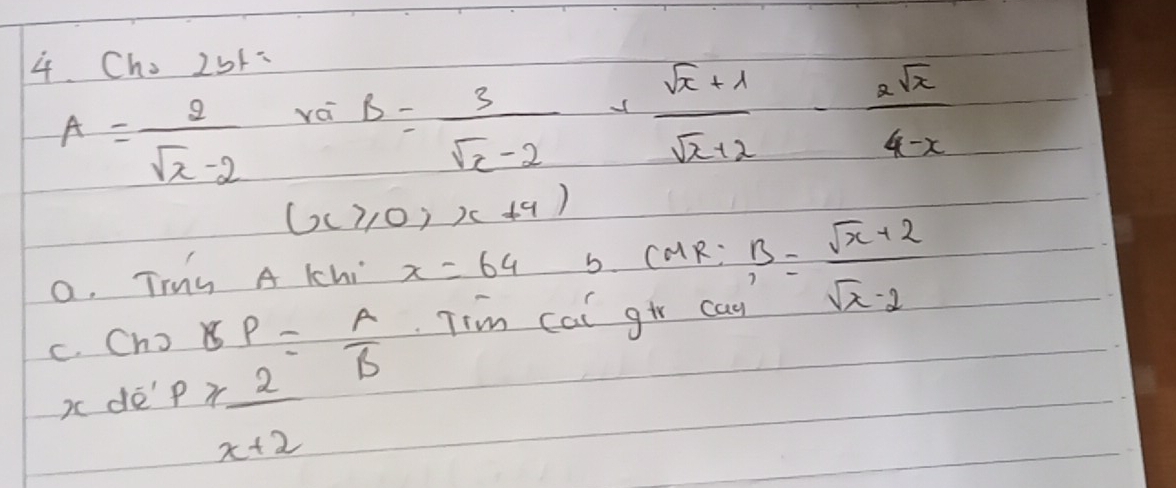 4. Cho 2bt:
A = 2/(√x - 2) và B = 3/(√x - 2) + (√x + 1)/(√x + 2) - 2√x/(4 - x)
(x ≥ 0, x ≠ 4)
a. Tính A khi x = 64 b. CMR: B = (√x + 2)/(√x - 2)
c. Cho P = A/B. Tìm các gtr của
x để P ≥ 2/(x + 2)